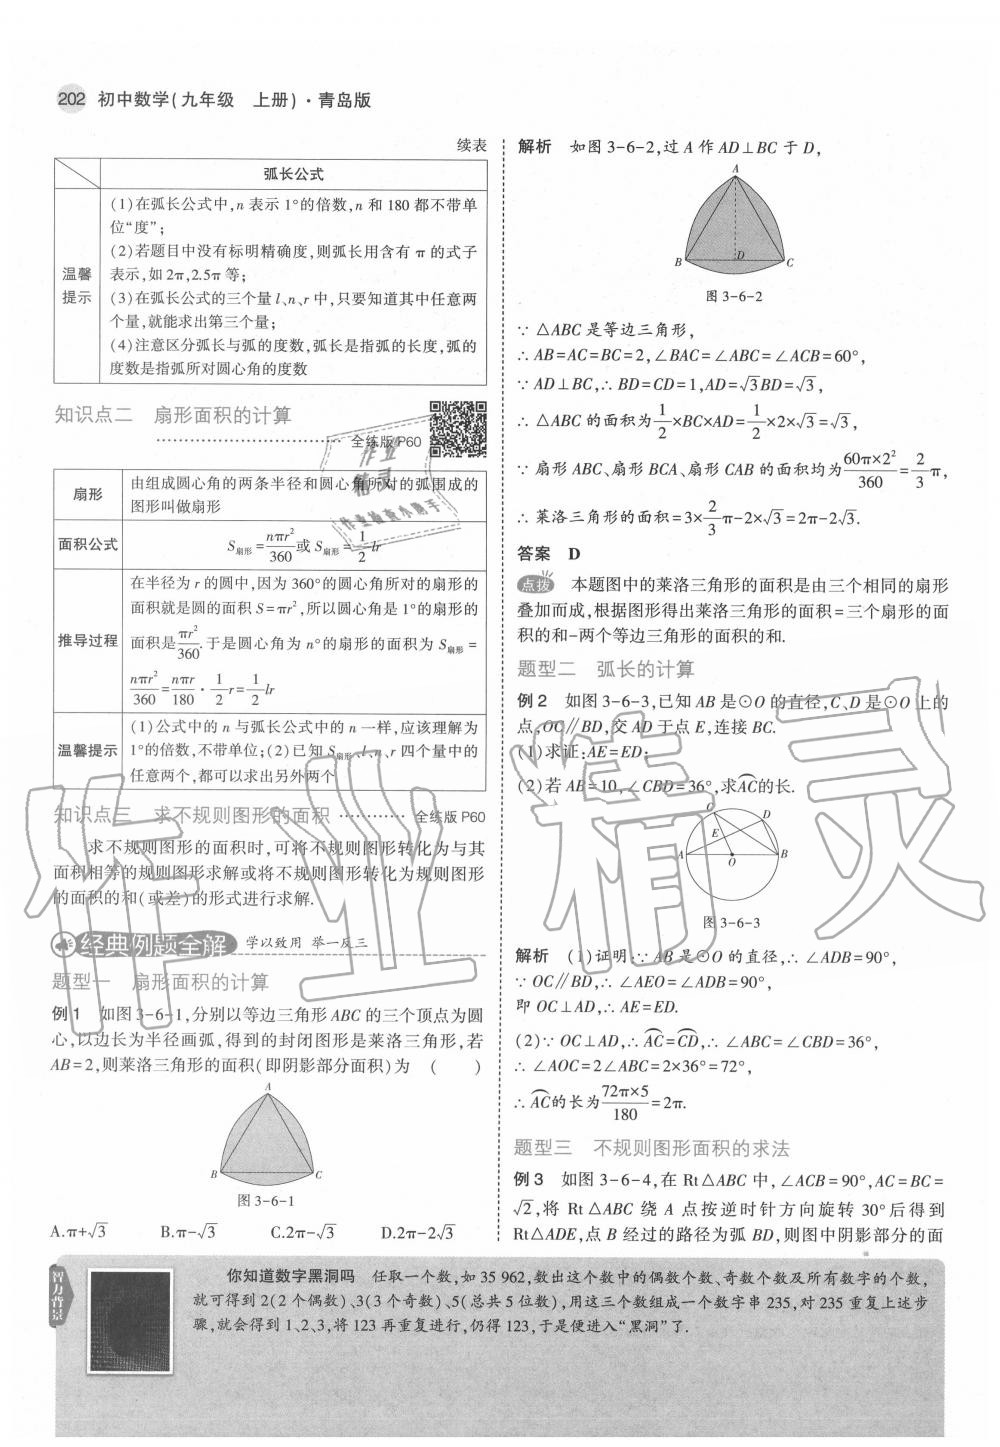 202 初中数学(九年级 上册)·青岛版
续表
弧长公式
温馨
提示
(1)在弧长公式中,n 表示 1°的倍数,n 和 180 都不带单
位“度”;
(2)若题目中没有标明精确度,则弧长用含有 π 的式子
表示,如 2π,2.5π 等;
(3)在弧长公式的三个量 l、n、r 中,只要知道其中任意两
个量,就能求出第三个量;
(4)注意区分弧长与弧的度数,弧长是指弧的长度,弧的
度数是指弧所对圆心角的度数
知识点二 扇形面积的计算
全练版 P60
扇形
由组成圆心角的两条半径和圆心角所对的弧围成的
图形叫做扇形
面积公式
S扇形=nπr²/360或 S扇形=1/2lr
推导过程
在半径为 r 的圆中,因为 360°的圆心角所对的扇形的
面积就是圆的面积 S=πr²,所以圆心角是 1°的扇形的
面积是πr²/360.于是圆心角为 n°的扇形的面积为 S扇形=
nπr²/360=nπr/180·1/2r=1/2lr
温馨提示
(1)公式中的 n 与弧长公式中的 n 一样,应该理解为
1°的倍数,不带单位;(2)已知 S扇形、l、n、r 四个量中的
任意两个,都可以求出另外两个
知识点三 求不规则图形的面积 全练版 P60
求不规则图形的面积时,可将不规则图形转化为与其
面积相等的规则图形求解或将不规则图形转化为规则图形
的面积的和(或差)的形式进行求解.
经典例题全解 学以致用 举一反三
题型一 扇形面积的计算
例 1 如图 3-6-1,分别以等边三角形 ABC 的三个顶点为圆
心,以边长为半径画弧,得到的封闭图形是莱洛三角形,若
AB=2,则莱洛三角形的面积(即阴影部分面积)为 ( )
A
B C
图 3-6-1
A.π+√3 B.π-√3 C.2π-√3 D.2π-2√3
解析 如图 3-6-2,过 A 作 AD⊥BC 于 D,
A
B D C
图 3-6-2
∵ △ABC 是等边三角形,
∴ AB=AC=BC=2,∠BAC=∠ABC=∠ACB=60°,
∵ AD⊥BC,∴ BD=CD=1,AD=√3BD=√3,
∴ △ABC 的面积为1/2×BC×AD=1/2×2×√3=√3,
∵ 扇形 ABC、扇形 BCA、扇形 CAB 的面积均为60π×2²/360=2/3π,
∴ 莱洛三角形的面积=3×2/3π-2×√3=2π-2√3.
答案 D
点拨 本题图中的莱洛三角形的面积是由三个相同的扇形
叠加而成,根据图形得出莱洛三角形的面积=三个扇形的面
积的和-两个等边三角形的面积的和.
题型二 弧长的计算
例 2 如图 3-6-3,已知 AB 是⊙O 的直径,C、D 是⊙O 上的
点,OC∥BD,交 AD 于点 E,连接 BC.
(1)求证:AE=ED;
(2)若 AB=10,∠CBD=36°,求⌒AC的长.
C D
E
A O B
图 3-6-3
解析 (1)证明:∵ AB 是⊙O 的直径,∴ ∠ADB=90°,
∵ OC∥BD,∴ ∠AEO=∠ADB=90°,
即 OC⊥AD,∴ AE=ED.
(2)∵ OC⊥AD,∴ ⌒AC=⌒CD,∴ ∠ABC=∠CBD=36°,
∴ ∠AOC=2∠ABC=2×36°=72°,
∴ ⌒AC的长为72π×5/180=2π.
题型三 不规则图形面积的求法
例 3 如图 3-6-4,在 Rt△ABC 中,∠ACB=90°,AC=BC=
√2,将 Rt△ABC 绕 A 点按逆时针方向旋转 30°后得到
Rt△ADE,点 B 经过的路径为弧 BD,则图中阴影部分的面
智力背景
你知道数字黑洞吗 任取一个数,如 35 962,数出这个数中的偶数个数、奇数个数及所有数字的个数,
就可得到 2(2 个偶数)、3(3 个奇数)、5(总共 5 位数),用这三个数组成一个数字串 235,对 235 重复上述步
骤,就会得到 1、2、3,将 123 再重复进行,仍得 123,于是便进入“黑洞”了.
作业精灵
作业
精灵
作业检查小助手